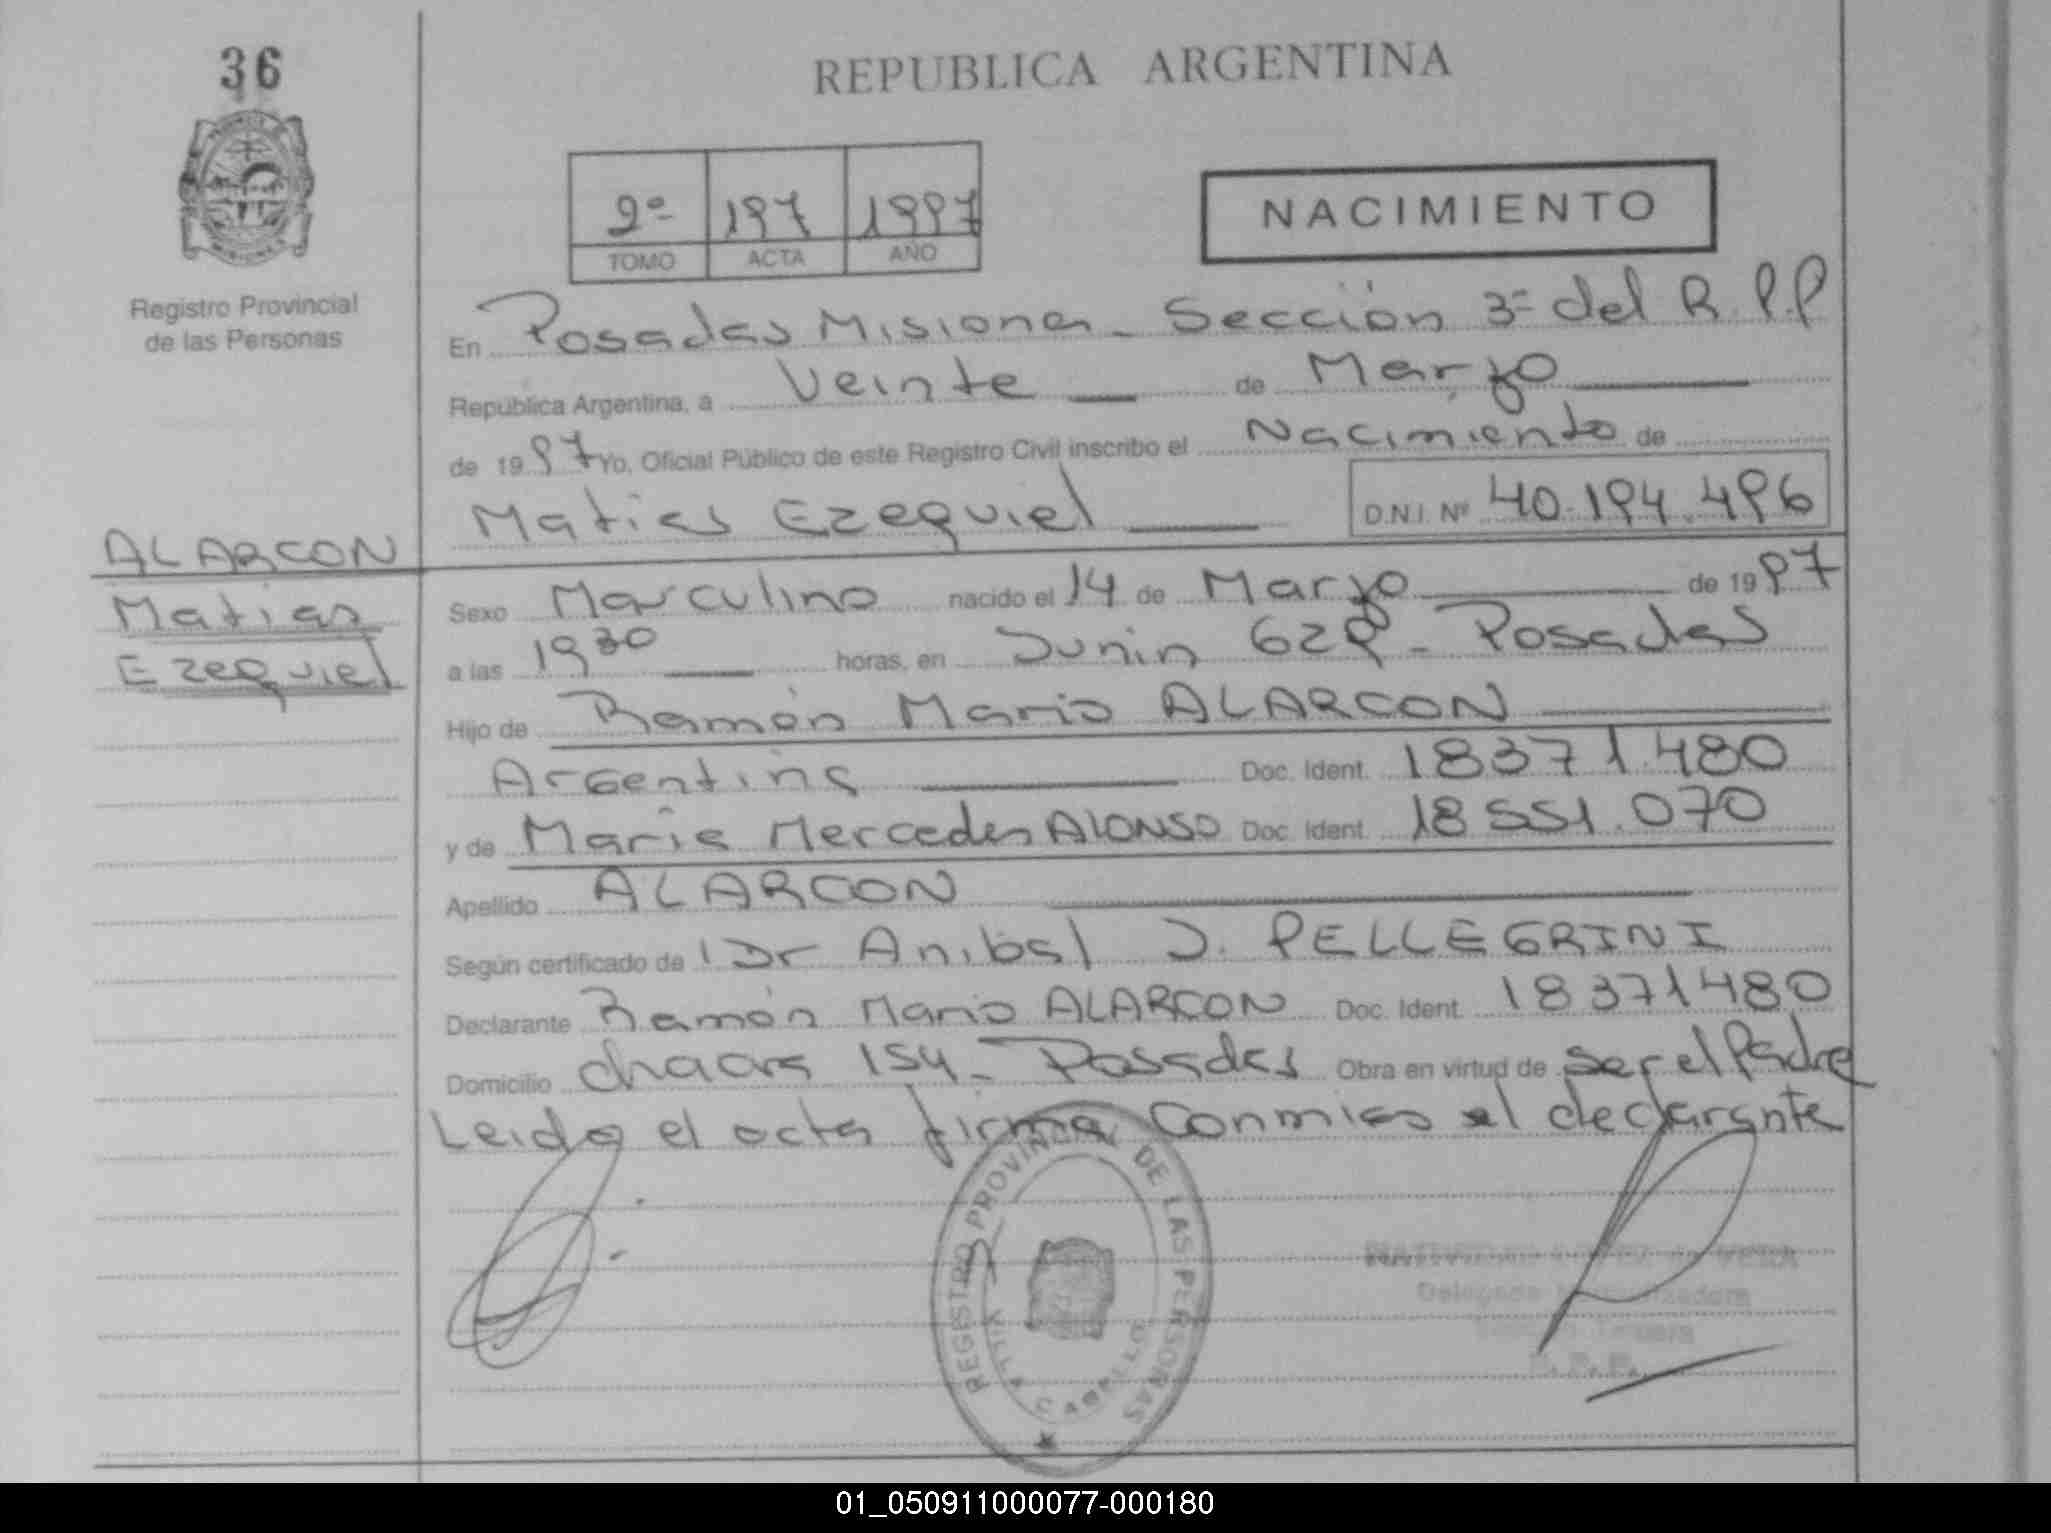 36
REPUBLICA ARGENTINA
2º 197 1997
TOMO ACTA AÑO
NACIMIENTO
Registro Provincial
de las Personas
En Posadas Misiones - Sección 3ª del R.P.P
República Argentina, a Veinte de Marzo
de 1997 Yo, Oficial Público de este Registro Civil inscribo el Nacimiento de
Matias Ezequiel D.N.I. Nº 40.194.496
ALARCON
Matias
Ezequiel
Sexo Masculino nacido el 14 de Marzo de 1997
a las 19 30 horas, en Junin 629 - Posadas
Hijo de Ramón Mario ALARCON
Argentina Doc. Ident. 18371.480
y de María Mercedes ALONSO Doc. Ident. 18551.070
Apellido ALARCON
Según certificado de Dr Anibal J. PELLEGRINI
Declarante Ramón Mario ALARCON Doc. Ident. 18371480
Domicilio chacra 154 - Posadas Obra en virtud de ser el Padre
Leida el acta firma conmigo el declarante
REGISTRO PROVINCIAL DE LAS PERSONAS
VILLA CABELLO
DE VERA
Delegada
R.P.P.
01_050911000077-000180